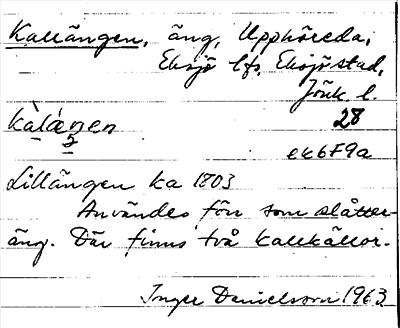 Kallängen, äng, Upphöreda,
Eksjö lfs, Eksjö stad,
Jönk. l.
28
kàláŋen
ek6F9a
Lillängen ka 1803
Användes förr som slåtter-
äng. Där finns två kallkällor.
Inger Danielsson 1963